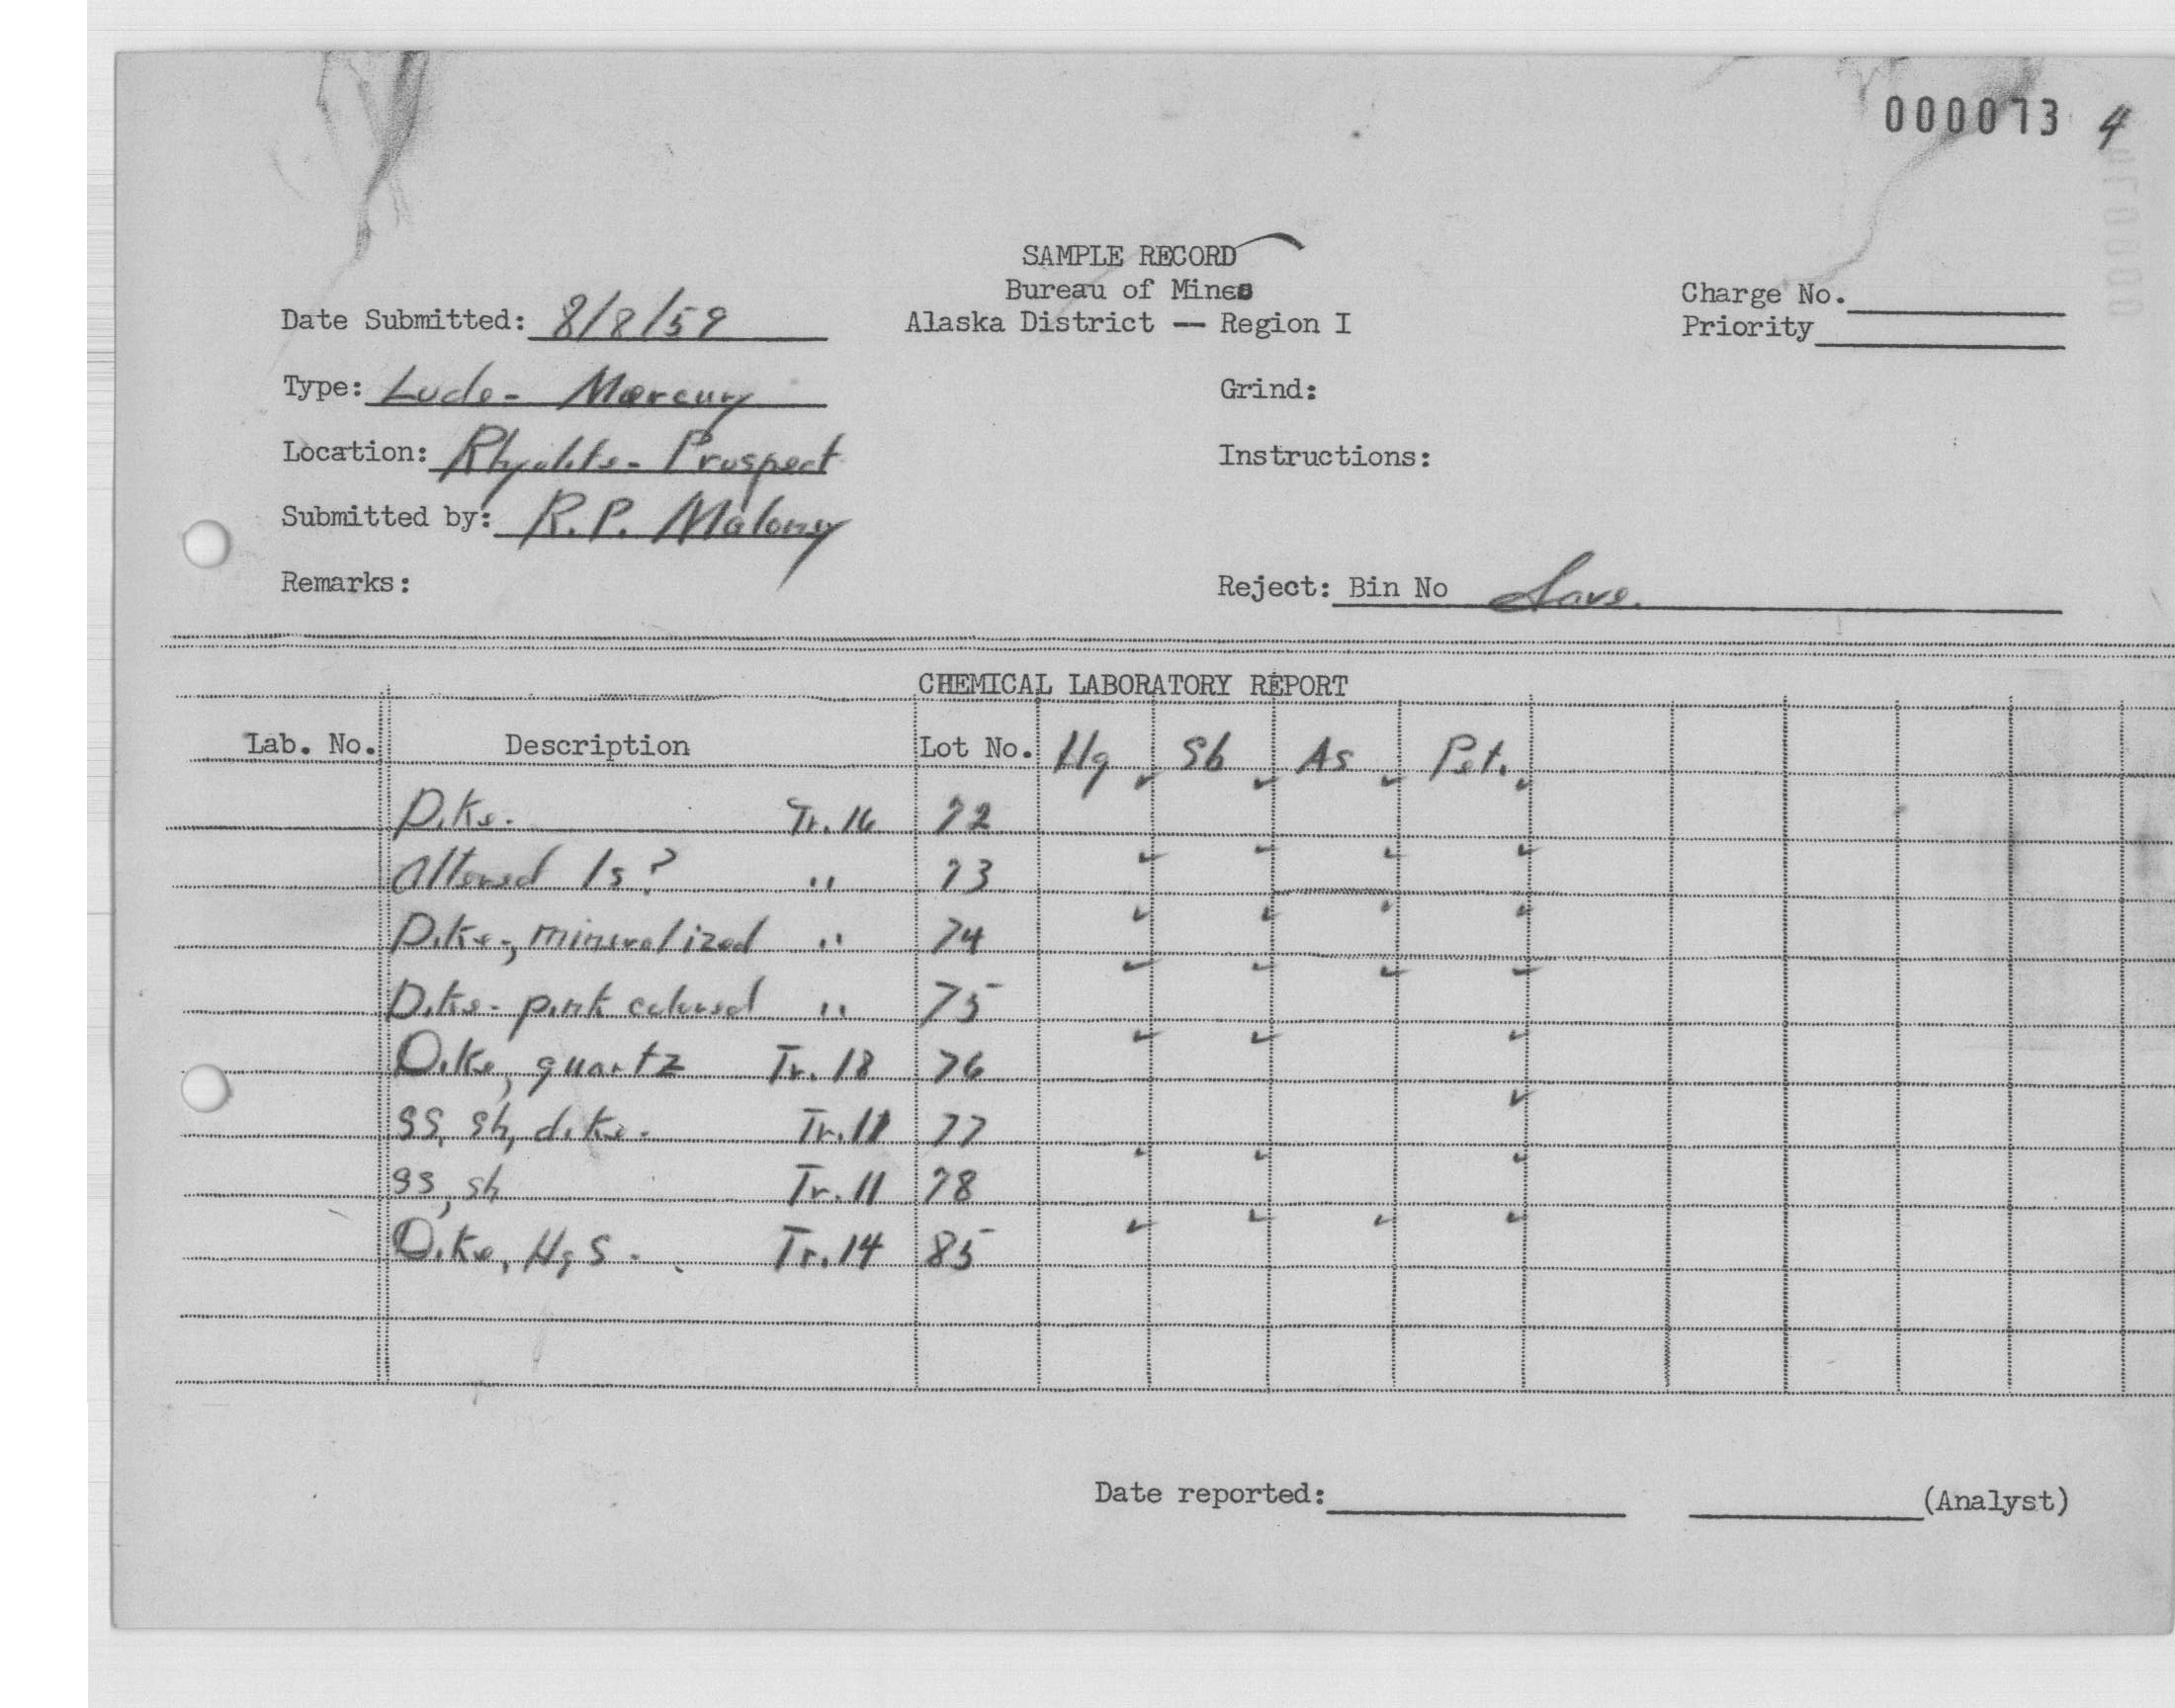 000073 4
SAMPLE RECORD
Bureau of Mines
Alaska District — Region I
Charge No.
Priority
Date Submitted: 8/8/59
Type: Lode - Mercury
Grind:
Location: Rhyolite - Prospect
Instructions:
Submitted by: R.P. Maloney
Remarks:
Reject: Bin No Save.
CHEMICAL LABORATORY REPORT
Lab. No. Description Lot No. Hg Sb As Pet.
Dike. Tr. 16 72 ✓ ✓ ✓ ✓
Altered ls? " 73 ✓ ✓ ✓ ✓
Dike, mineralized " 74 ✓ ✓ ✓ ✓
Dike - pink colored " 75 ✓ ✓ ✓ ✓
Dike, quartz Tr. 18 76 ✓ ✓ ✓
ss, sh, dike. Tr. 11 77 ✓
ss, sh Tr. 11 78 ✓ ✓ ✓
Dike, HgS. Tr. 14 85 ✓ ✓ ✓ ✓
Date reported: (Analyst)